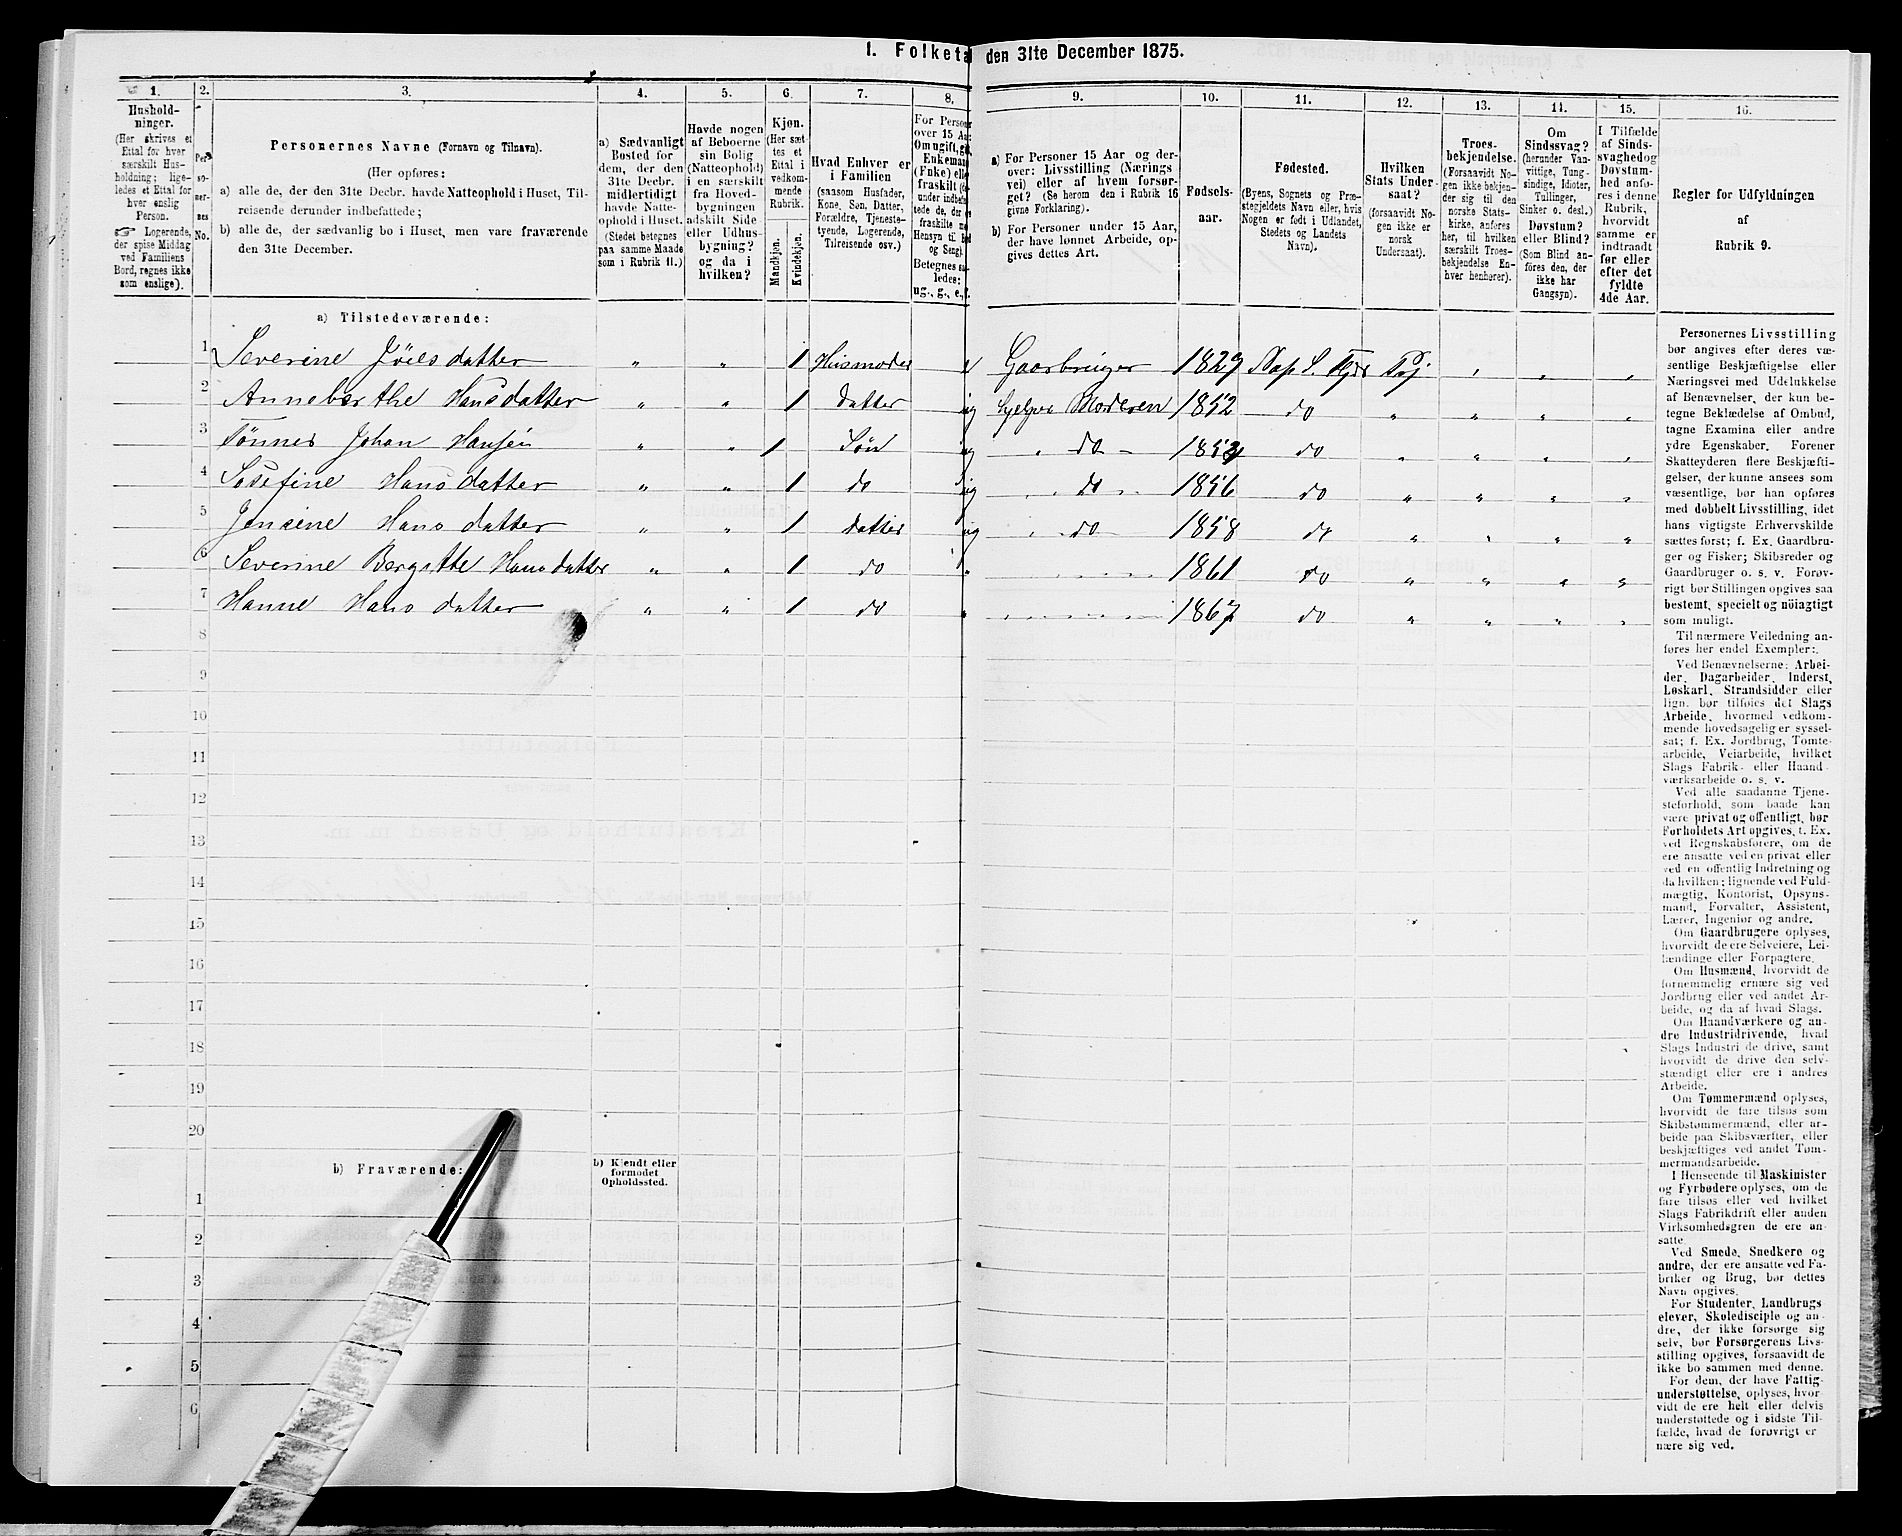 1. Folketa den 31te December 1875.
1. 2. 3. 4. 5. 6. 7. 8. 9. 10. 11. 12. 13. 14. 15. 16.
Hushold-
ninger.
(Her skrives et
Ettal for hver
særskilt Hus-
holdning; lige-
ledes et Ettal for
hver enslig
Person.
☞ Logerende,
der spise Middag
ved Familiens
Bord, regnes ikke
som enslige).
Per-
so-
ner-
nes
No.
Personernes Navne (Fornavn og Tilnavn).
(Her opføres:
a) alle de, der den 31te Decbr. havde Natteophold i Huset, Til-
reisende derunder indbefattede;
b) alle de, der sædvanlig bo i Huset, men vare fraværende
den 31te December.
a) Sædvanligt
Bosted for
dem, der den
31te Decbr.
midlertidigt
havde Natte-
ophold i Huset.
(Stedet betegnes
paa samme Maade
som i Rubrik 11.)
Havde nogen
af Beboerne
sin Bolig
(Natteophold)
i en særskilt
fra Hoved-
bygningen
adskilt Side
eller Udhus-
bygning?
og da i
hvilken?
Kjøn.
(Her sæt-
tes et
Ettal i
vedkom-
mende
Rubrik.
Mandkjøn.
Kvindekjøn.
Hvad Enhver er
i Familien
(saasom Husfader,
Kone, Søn, Datter,
Forældre, Tjeneste-
tyende, Logerende,
Tilreisende osv.)
For Person
over 15 Aar:
Om ugift, gift
Enkemand
(Enke) eller
fraskilt
Betegnes saa-
ledes:
ug., g., e., f.
a) For Personer 15 Aar og der-
over: Livsstilling (Nærings-
vei) eller af hvem forsør-
get? (Se herom den i Rubrik 16
givne Forklaring).
b) For Personer under 15 Aar,
der have lønnet Arbeide, op-
gives dettes Art.
Fødsels-
aar.
Fødested.
(Byens, Sognets og Præ-
stegjeldets Navn eller, hvis
Nogen er født i Udlandet,
Stedets og Landets
Navn).
Hvilken
Stats Under-
saat?
(forsaavidt No-
gen ikke er
norsk
Undersaat).
Troes-
bekjendelse.
(Forsaavidt No-
gen ikke bekjen-
der sig til den
norske Stats-
kirke, anføres
her, til hvilken
særskilt Troes-
bekjendelse En-
hver henhører).
Om
Sindssvag?
(herunder Van-
vittige, Tung-
sindige, Idioter,
Tullinger,
Sinker o. desl.)
Døvstum?
eller Blind?
(Som Blind an-
føres den, der
ikke har
Gangsyn).
I Tilfælde
af Sinds-
svaghed og
Døvstum-
hed anfø-
res i denne
Rubrik,
hvorvidt
samme er
indtraadt
før eller
efter det
fyldte
4de Aar.
Regler for Udfyldningen
af
Rubrik 9.
a) Tilstedeværende:
1 Severine Jöelsdatter " " 1 Husmoder Gaarbruger 1829
2 Anneberthe Hansdatter " " 1 datter ug hjelper Moderen 1852 do " " " "
3 Tönnes Johan Hansen " " 1 Sön ug " do - do " " " "
4 Josefine Hansdatter " " 1 do ug " do " 1856 do " " " "
5 Jensine Hansdatter " " 1 datter ug " do 1858 do " " " "
6 Severine Bergitte Hansdatter " " 1 do " 1861 do " " " "
7 Hanne Hansdatter " " 1 do " 1867 do " " " "
8
9
10
11
12
13
14
15
16
17
18
19
20
b) Fraværende:
b) Kjendt eller
formodet
Opholdssted.
1
2
3
4
5
6
Personernes Livsstilling
bør angives efter deres væ-
sentlige Beskjæftigelse eller
Næringsvei med Udelukkelse
af Benævnelser, der kun be-
tegne Beklædelse af Ombud,
tagne Examina eller andre
ydre Egenskaber. Forener
Skatteyderen flere Beskjæfti-
gelser, der kunne ansees som
væsentlige, bør han opføres
med dobbelt Livsstilling, idet
hans vigtigste Erhvervskilde
sættes først; f. Ex. Gaardbru-
ger og Fisker; Skibsreder og
Gaardbruger o. s. v. Forøv-
rigt bør Stillingen opgives saa
bestemt, specielt og nöiagtigt
som muligt.
Til nærmere Veiledning an-
føres her endel Exempler:
Ved Benævnelserne: Arbei-
der, Dagarbeider, Inderst,
Løskarl, Strandsidder eller
lign. bør tilføies det Slags
Arbeide, hvormed vedkom-
mende hovedsagelig er syssel-
sat; f. Ex. Jordbrug, Tomte-
arbeide, Veiarbeide, hvilket
Slags Fabrik- eller Haand-
værksarbeide o. s. v.
Ved alle saadanne Tjene-
steforhold, som baade kan
være privat og offentligt, bør
Forholdets Art opgives, t. Ex.
ved Regnskabsførere, om de
ere ansatte ved en privat eller
ved en offentlig Indretning og
da hvilken; lignende ved Fuld-
mægtig, Kontorist, Opsyns-
mand, Forvalter, Assistent,
Lærer, Ingeniør og andre.
Om Gaardbrugere oplyses,
hvorvidt de ere Selveiere, Lei-
lændinge eller Forpagtere.
Om Husmænd, hvorvidt de
fornemmelig ernære sig ved
Jordbrug eller ved andet Ar-
beide, og da af hvad Slags.
Om Haandværkere og an-
dre Industridrivende, hvad
Slags Industri de drive, samt
hvorvidt de drive den selv-
stændigt eller ere i andres
Arbeide.
Om Tømmermænd oplyses,
hvorvidt de fare tilsøs som
Skibstømmermænd, eller ar-
beide paa Skibsværfter, eller
beskjæftiges ved andet Tøm-
mermandsarbeide.
I Henseende til Maskinister
og Fyrbødere oplyses, om de
fare tilsøs eller ved hvilket
Slags Fabrikdrift eller anden
Virksomhedsgren de ere an-
satte.
Ved Smede, Snedkere og
andre, der ere ansatte ved Fa-
briker og Brug, bør dettes
Navn opgives.
For Studenter, Landbrugs-
elever, Skoledisciple og an-
dre, der ikke forsørge sig
selv, bør Forsørgerens Livs-
stilling opgives, forsaavidt de
ikke bo sammen med denne.
For dem, der have Fattig-
understøttelse, oplyses, hvor-
vidt de ere helt eller delvis
understøttede og i sidste Til-
fælde, hvad de forøvrigt er
nære sig ved.